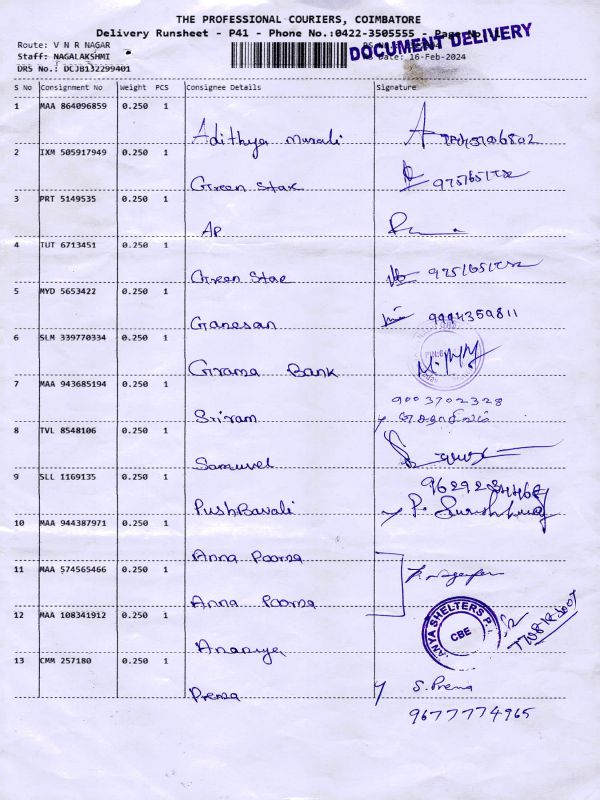 THE PROFESSIONAL COURIERS, COIMBATORE
Delivery Runsheet - P41 - Phone No.:0422-3505555 - Page No
Route: V N R NAGAR
DOCUMENT DELIVERY
Staff: NAGALAKSHMI
Date: 16-Feb-2024
DRS No.: DCJB132299401
S No Consignment No Weight PCS Consignee Details Signature
1 MAA 864096859 0.250 1
Adithya Murali
2 IXM 505917949 0.250 1
Green Star
3 PRT 5149535 0.250 1
AP
4 TUT 6713451 0.250 1
Green Star
5 MYD 5653422 0.250 1
Ganesan 9994359811
6 SLM 339770334 0.250 1
Grama Bank
7 MAA 943685194 0.250 1
9003702328
Sriram
8 TVL 8548106 0.250 1
Samuvel
9 SLL 1169135 0.250 1
PushBavali
10 MAA 944387971 0.250 1
Anna Poorna
11 MAA 574565466 0.250 1
Anna Poorna
12 MAA 108341912 0.250 1
ANYA SHELTERS P.
CBE
Ananya
13 CMM 257180 0.250 1
Prema S. Prema
9677774965